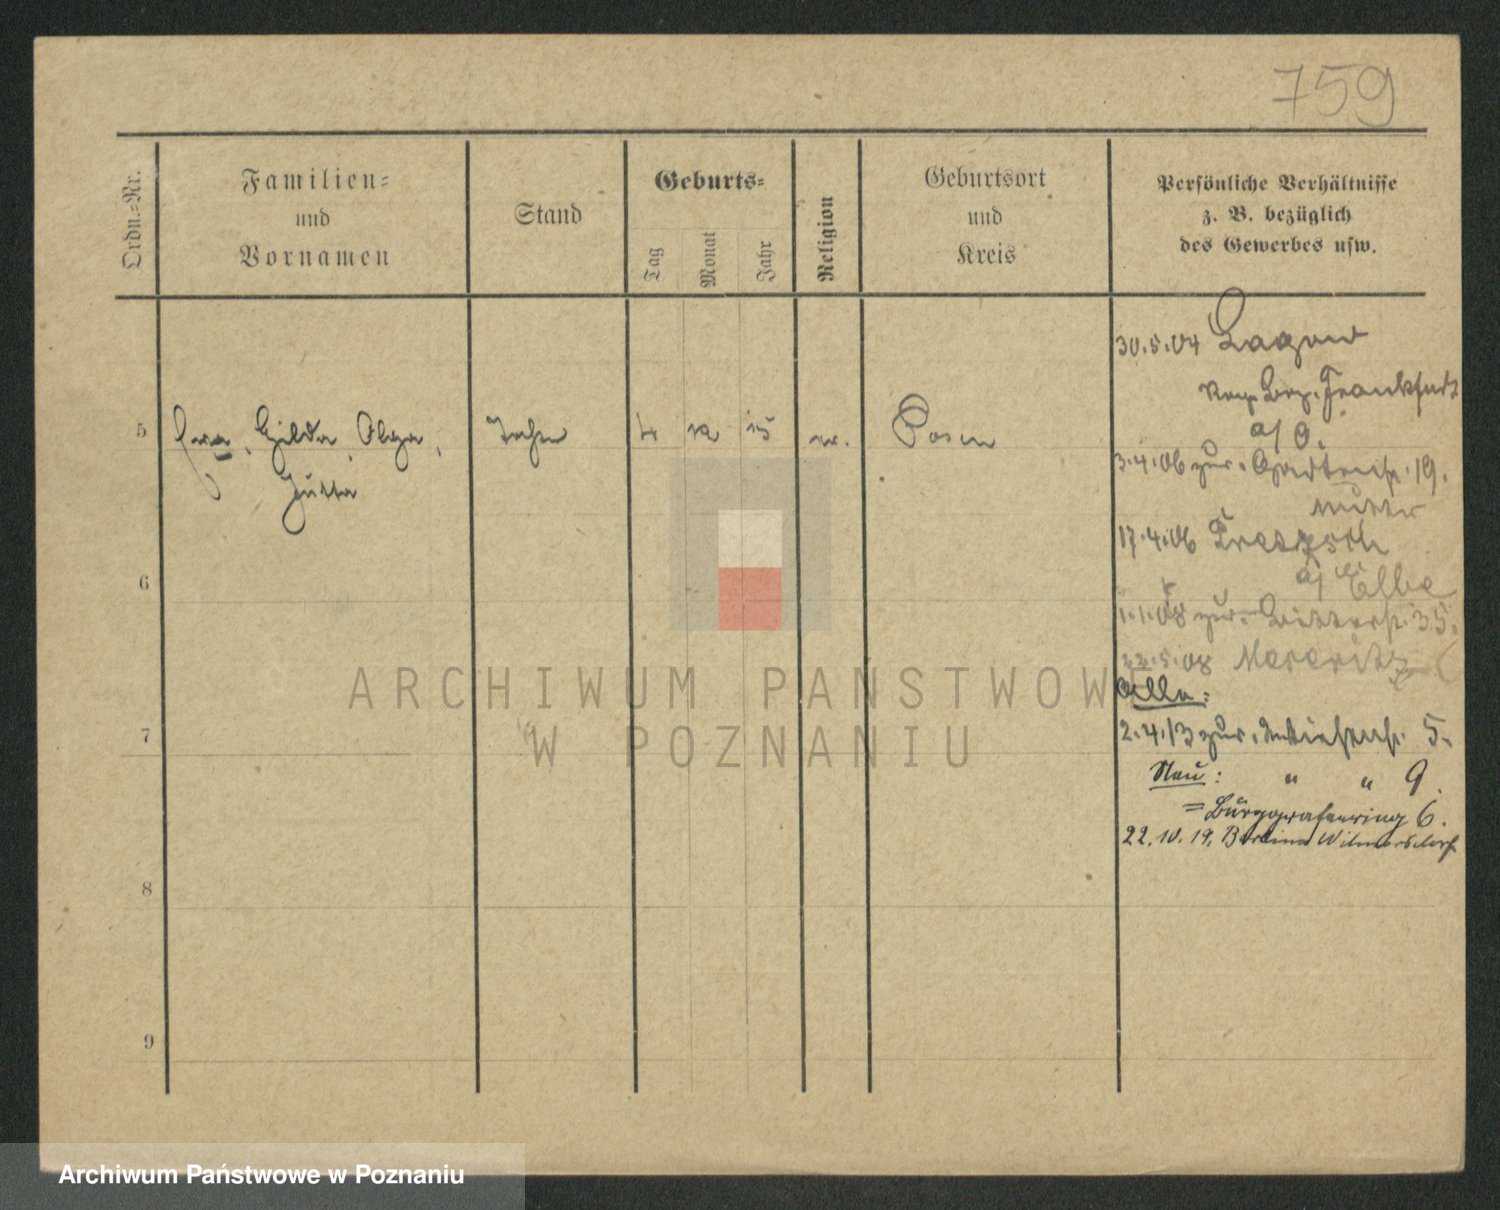 759
Ordn.=Nr.
Familien=
und
Vornamen
Stand
Geburts=
Tag
Monat
Jahr
Religion
Geburtsort
und
Kreis
Persönliche Verhältnisse
z. B. bezüglich
des Gewerbes usw.
5
Eva, Hilda, Olga,
Jutta
4
12
15
ev.
Posen
30.5.04 Lagow
Reg. Bez. Frankfurt
a/O.
3.4.06 zur. Gartenstr. 19.
17.4.06
a/ Elbe
1.1.08 zur. Ritterstr. 35.
22.5.08
Alle:
2.4.13 zur. 5.
Neu: " " 9.
= Burggrafenring 6.
22.10.19. Berlin Wilmersdorf
6
7
8
9
ARCHIWUM PAŃSTWOW
W POZNANIU
Archiwum Państwowe w Poznaniu